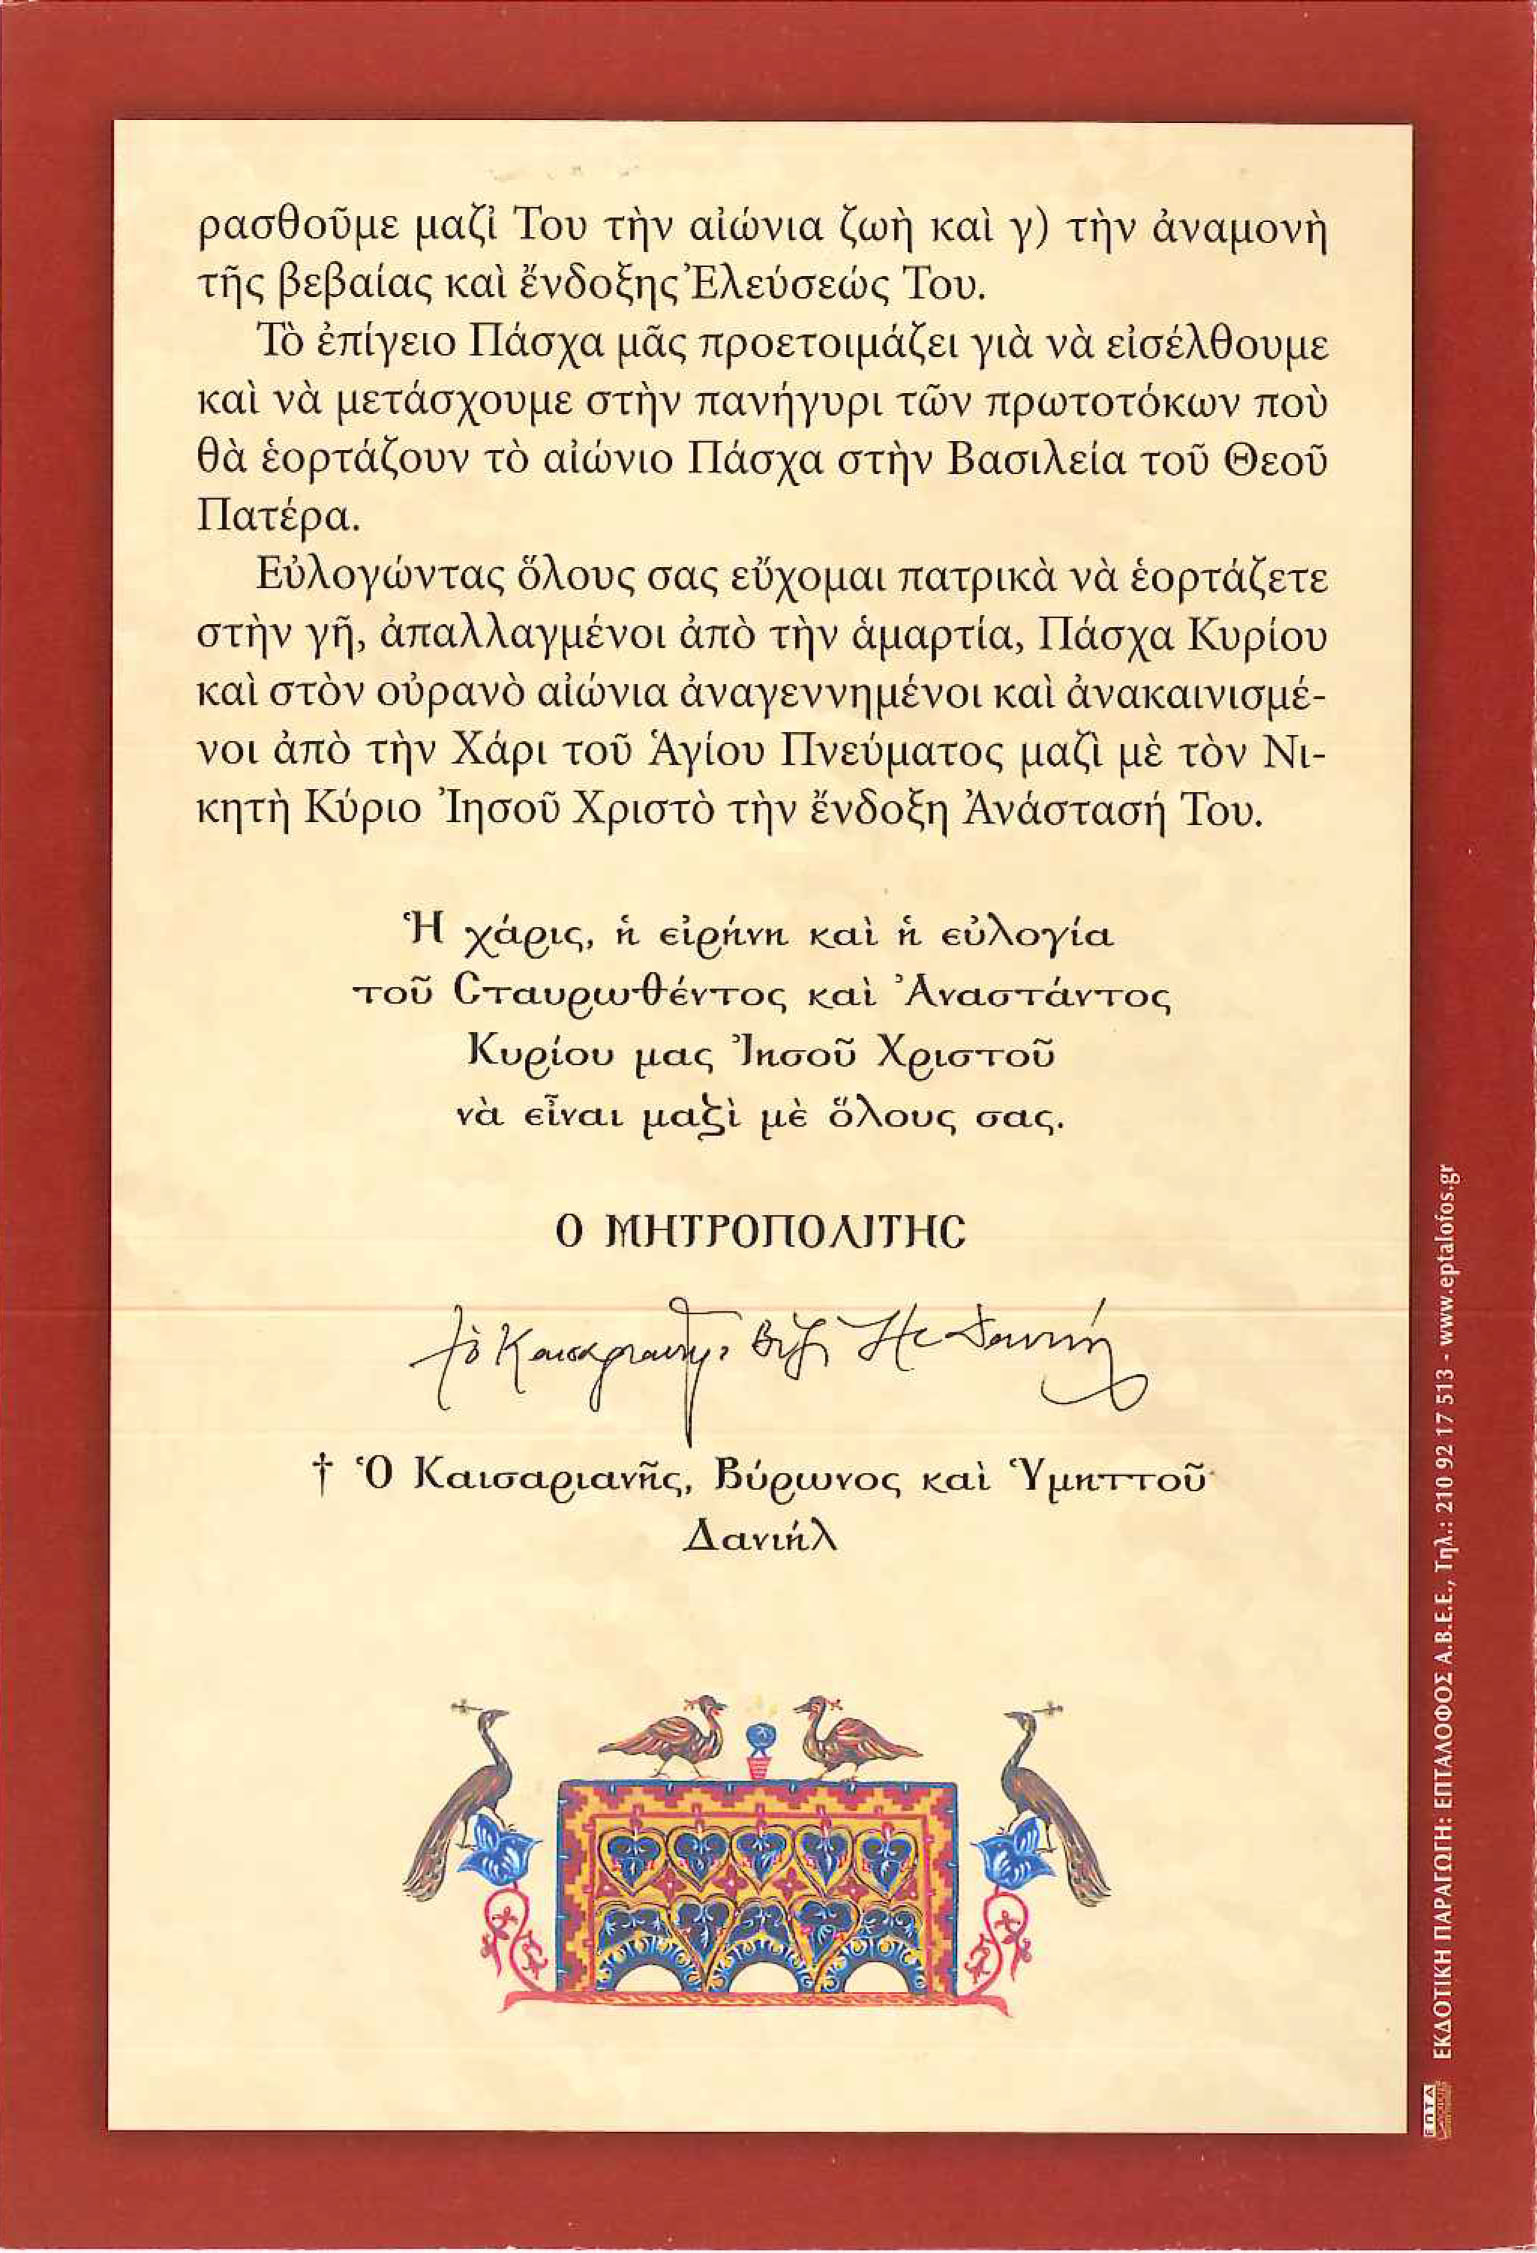 ρασθοῦμε μαζὶ Του τὴν αἰώνια ζωὴ καὶ γ) τὴν ἀναμονὴ
τῆς βεβαίας καὶ ἔνδοξης Ἐλεύσεώς Του.
Τὸ ἐπίγειο Πάσχα μᾶς προετοιμάζει γιὰ νὰ εἰσέλθουμε
καὶ νὰ μετάσχουμε στὴν πανήγυρι τῶν πρωτοτόκων ποὺ
θὰ ἑορτάζουν τὸ αἰώνιο Πάσχα στὴν Βασιλεία τοῦ Θεοῦ
Πατέρα.
Εὐλογώντας ὅλους σας εὔχομαι πατρικὰ νὰ ἑορτάζετε
στὴν γῆ, ἀπαλλαγμένοι ἀπὸ τὴν ἁμαρτία, Πάσχα Κυρίου
καὶ στὸν οὐρανὸ αἰώνια ἀναγεννημένοι καὶ ἀνακαινισμέ-
νοι ἀπὸ τὴν Χάρι τοῦ Ἁγίου Πνεύματος μαζὶ μὲ τὸν Νι-
κητὴ Κύριο Ἰησοῦ Χριστὸ τὴν ἔνδοξη Ἀνάστασή Του.
Ἡ χάρις, ἡ εἰρήνη καὶ ἡ εὐλογία
τοῦ Σταυρωθέντος καὶ Ἀναστάντος
Κυρίου μας Ἰησοῦ Χριστοῦ
νὰ εἶναι μαζὶ μὲ ὅλους σας.
Ο ΜΗΤΡΟΠΟΛΙΤΗΣ
† Ὁ Καισαριανῆς, Βύρωνος καὶ Ὑμηττοῦ
Δανιήλ
ΕΚΔΟΤΙΚΗ ΠΑΡΑΓΩΓΗ: ΕΠΤΑΛΟΦΟΣ Α.Β.Ε.Ε., Τηλ.: 210 92 17 513 - www.eptalofos.gr
ΕΠΤΑ